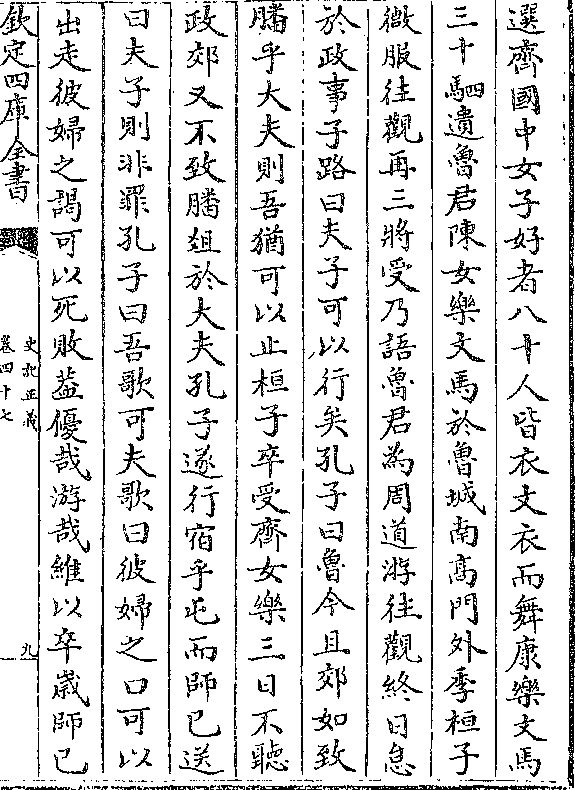 選齊國中女子好者八十人皆衣文衣而舞康樂文馬
三十駟遺魯君陳女樂文馬於魯城南髙門外季桓子
微服往觀再三將受乃語魯君為周道游往觀終日怠
於政事子路曰夫子可以行矣孔子曰魯今且郊如致
膰乎大夫則吾猶可以止桓子卒受齊女樂三日不聽
政郊又不致膰俎於大夫孔子遂行宿乎屯而師已送
曰夫子則非罪孔子曰吾歌可夫歌曰彼婦之口可以
出走彼婦之謁可以死敗葢優哉游哉維以卒歲師已
欽定四庫全書
史記正義
卷四十七
九